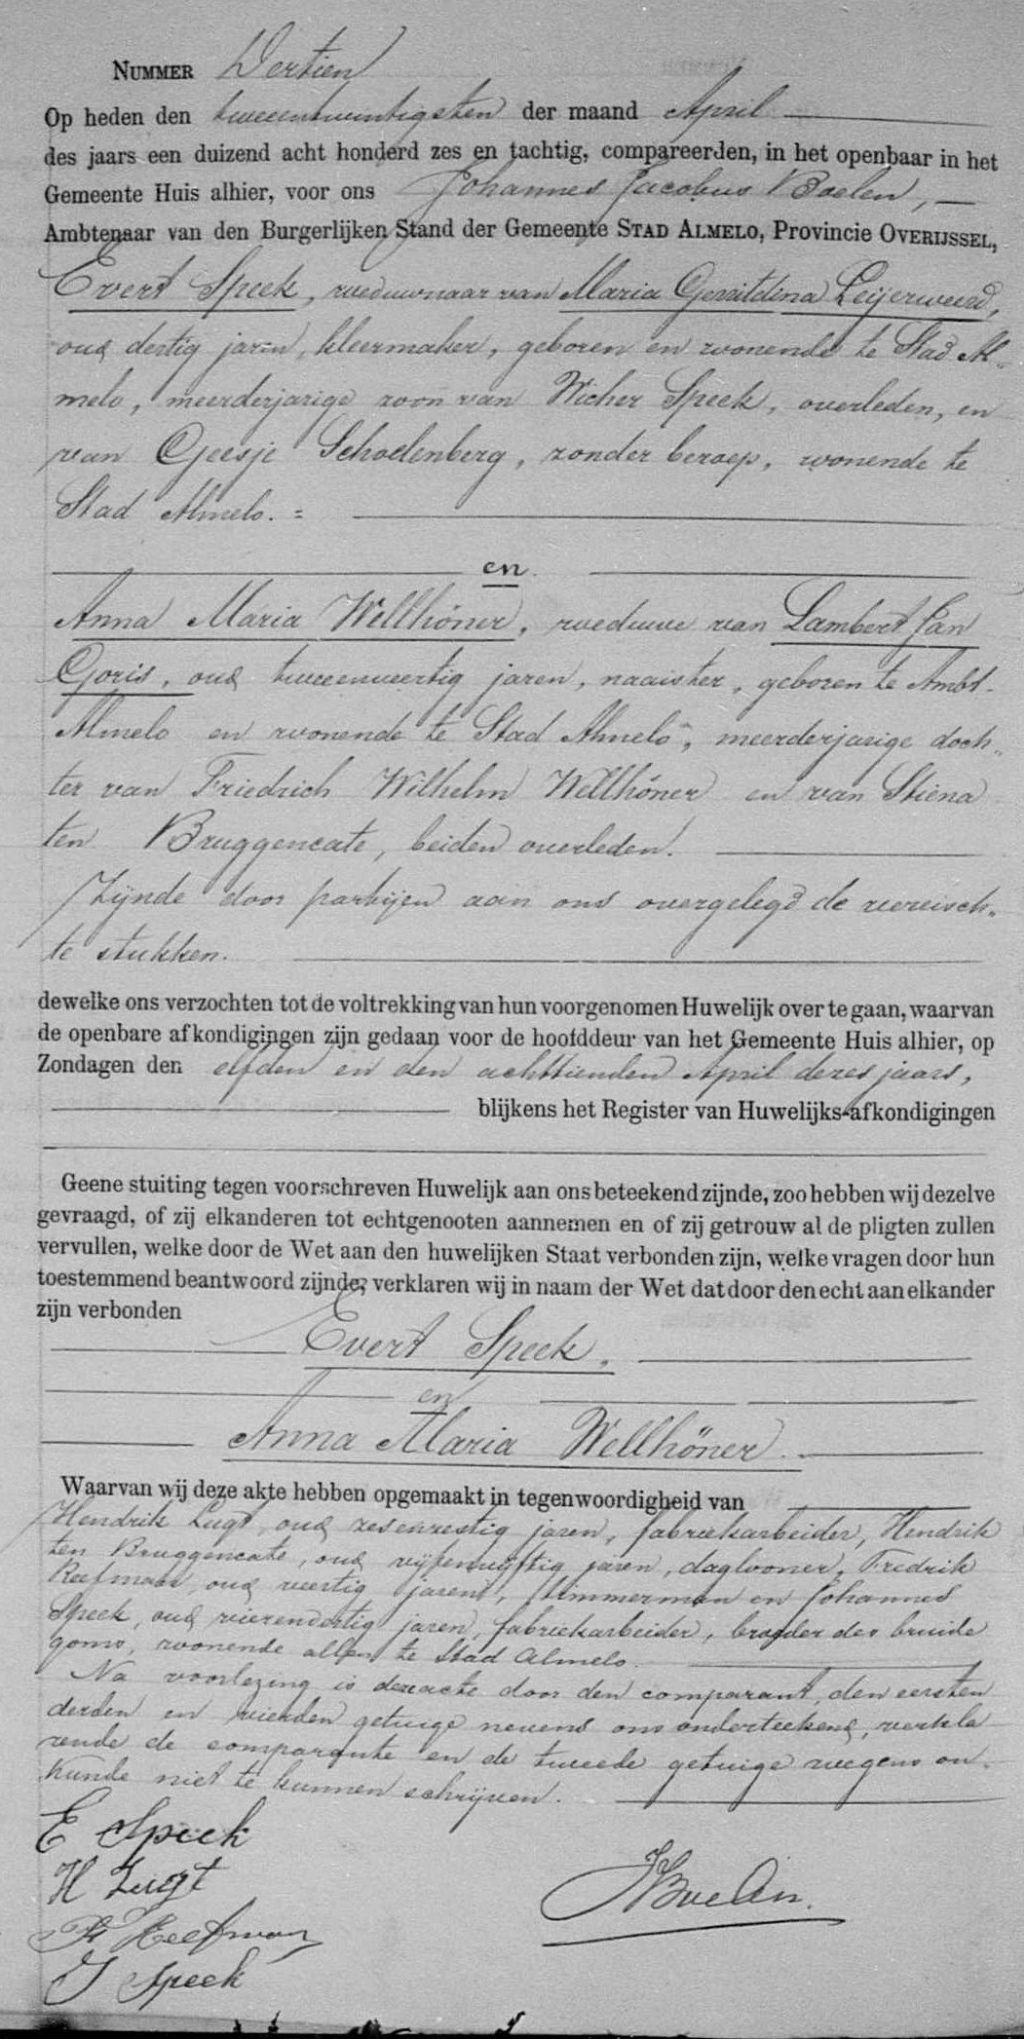 NUMMER Dertien
Op heden den tweeentwintigsten der maand April
des jaars een duizend acht honderd zes en tachtig, compareerden, in het openbaar in het
Gemeente Huis alhier, voor ons Johannes Jacobus Boelen,
Ambtenaar van den Burgerlijken Stand der Gemeente STAD ALMELO, Provincie OVERIJSSEL,
Evert Speek, weduwnaar van Maria Gerritdina Leijerweerd,
oud dertig jaren, kleermaker, geboren en wonende te Stad Al-
melo, meerderjarige zoon van Wicher Speek, overleden, en
van Geesje Schoelenberg, zonder beroep, wonende te
Stad Almelo. =
en
Anna Maria Wellhöner, weduwe van Lambert Jan
Goris, oud tweeenveertig jaren, naaister, geboren te Ambt-
Almelo en wonende te Stad Almelo, meerderjarige doch-
ter van Friedrich Wilhelm Wellhöner en van Stiena
ten Bruggencate, beiden overleden.
Zijnde door partijen aan ons overgelegd de vereisch-
te stukken.
dewelke ons verzochten tot de voltrekking van hun voorgenomen Huwelijk over te gaan, waarvan
de openbare afkondigingen zijn gedaan voor de hoofddeur van het Gemeente Huis alhier, op
Zondagen den elfden en den achttienden April dezes jaars,
blijkens het Register van Huwelijks-afkondigingen
Geene stuiting tegen voorschreven Huwelijk aan ons beteekend zijnde, zoo hebben wij dezelve
gevraagd, of zij elkanderen tot echtgenooten aannemen en of zij getrouw al de pligten zullen
vervullen, welke door de Wet aan den huwelijken Staat verbonden zijn, welke vragen door hun
toestemmend beantwoord zijnde, verklaren wij in naam der Wet dat door den echt aan elkander
zijn verbonden
Evert Speek.
en
Anna Maria Wellhöner.
Waarvan wij deze akte hebben opgemaakt in tegenwoordigheid van
Hendrik Lugt, oud zesenzestig jaren, fabriekarbeider, Hendrik
ten Bruggencate, oud vijfenvijftig jaren, daglooner, Fredrik
Reefman, oud veertig jaren, timmerman en Johannes
Speek, oud vierendertig jaren, fabriekarbeider, broeder des bruide
goms, wonende allen te Stad Almelo.
Na voorlezing is deze acte door den comparant, den eersten
derden en vierden getuige nevens ons onderteekend, verkla
rende de comparante en de tweede getuige wegens on-
kunde niet te kunnen schrijven.
E Speek
H Lugt
F Reefman
J Speek
JJBoelen.